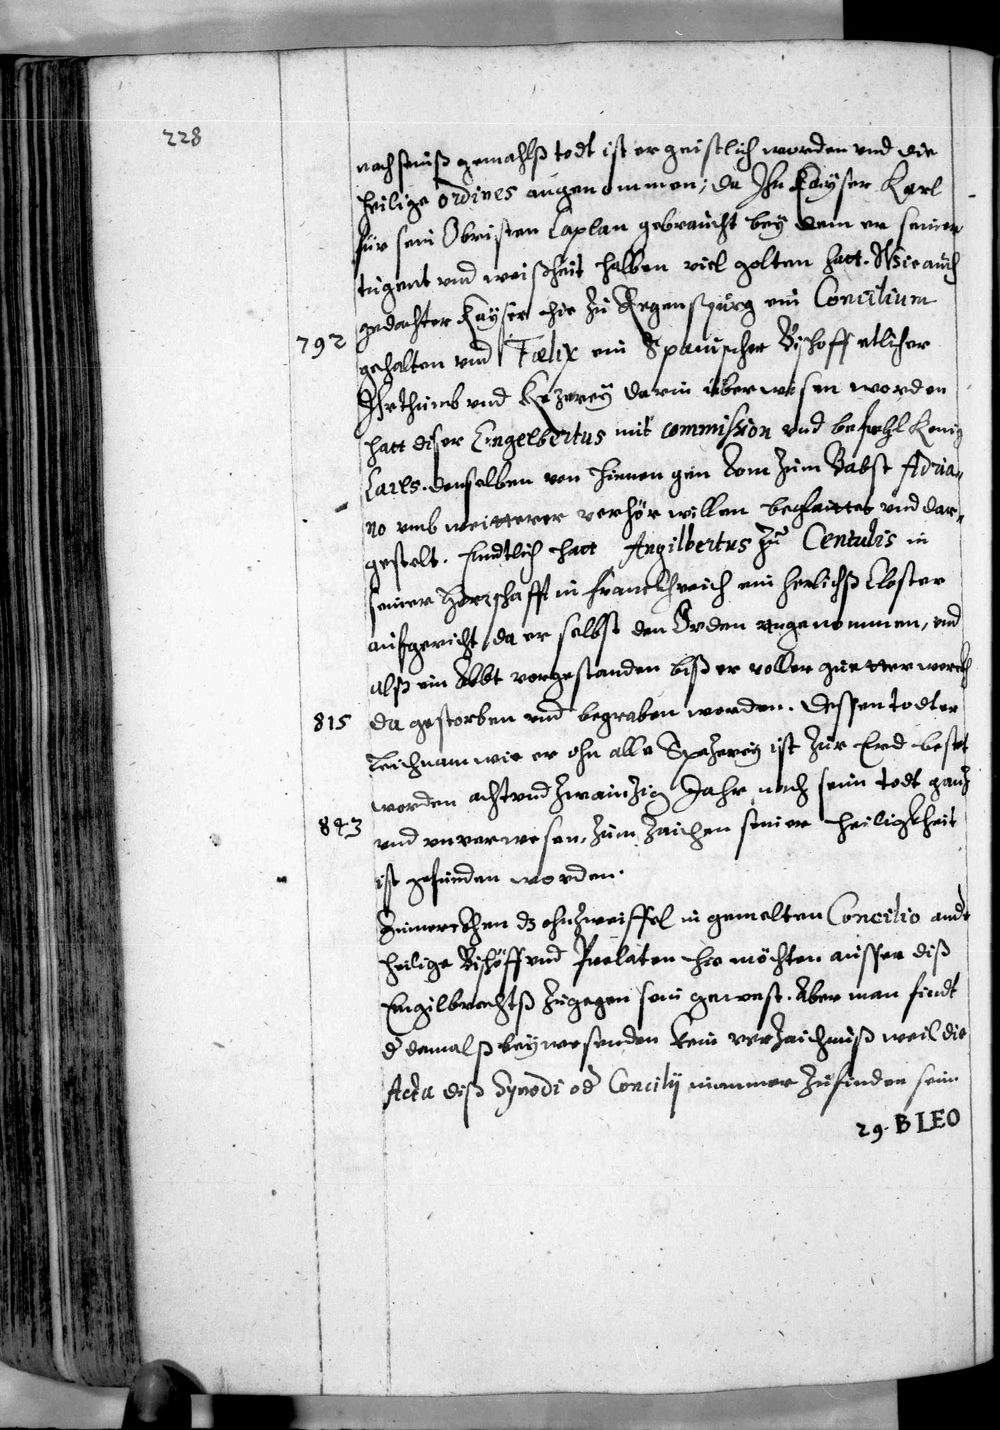 228
nach seinß gemahlß todt ist er geistlich worden vnd die
heilige ordines angenommen; da Ihn Kayser Karl
für sein Obristen Caplan gebraucht bey dem er seiner
tugent vnd weißheit halben viel golten hatt. Wie auch
gedachter Kayser hie zu Regenspurg ein Concilium
792 gehalten vnd Fælix ein Spanischer Bischoff etlicher
Ihrthumb vnd Kezerey darin überwisen worden
hatt diser Engelbertus mit commission vnd befehl Konig
Carls. denselben von hinnen gen Rom zum Babst Adria„
no vmb weitterer verhör willen beglaittet vnd dar„
gestelt. Endtlich hatt Angilbertus zu Centulis in
seiner Herrschafft in Franckhreich ein herlichß Closter
aufgericht, da er selbst den Orden angenommen, vnd
alß ein Abbt vorgestanden biß er voller guetter werckh
815 da gestorben vnd begraben worden. dessen todter
Leichnam wie er ohn alle Spezerey ist zur Erd bestet
worden acht vnd zwainzig Jahr nach seim todt ganz
843 vnd vnverwesen, zum zaichen seiner heiligkheit
ist gefunden worden.
Zumerckhen dz ohnzweiffel in gemelten Concilio andr
heilige Bischöff vnd Prelaten hie möchten ausser diß
Engilbrechtß zugegen sein gewest. Aber man findt
d damalß beywesenden kein verzaichnuß weil die
Acta diß Synodi od Concilij nimmer zufinden sein
29. B LEO